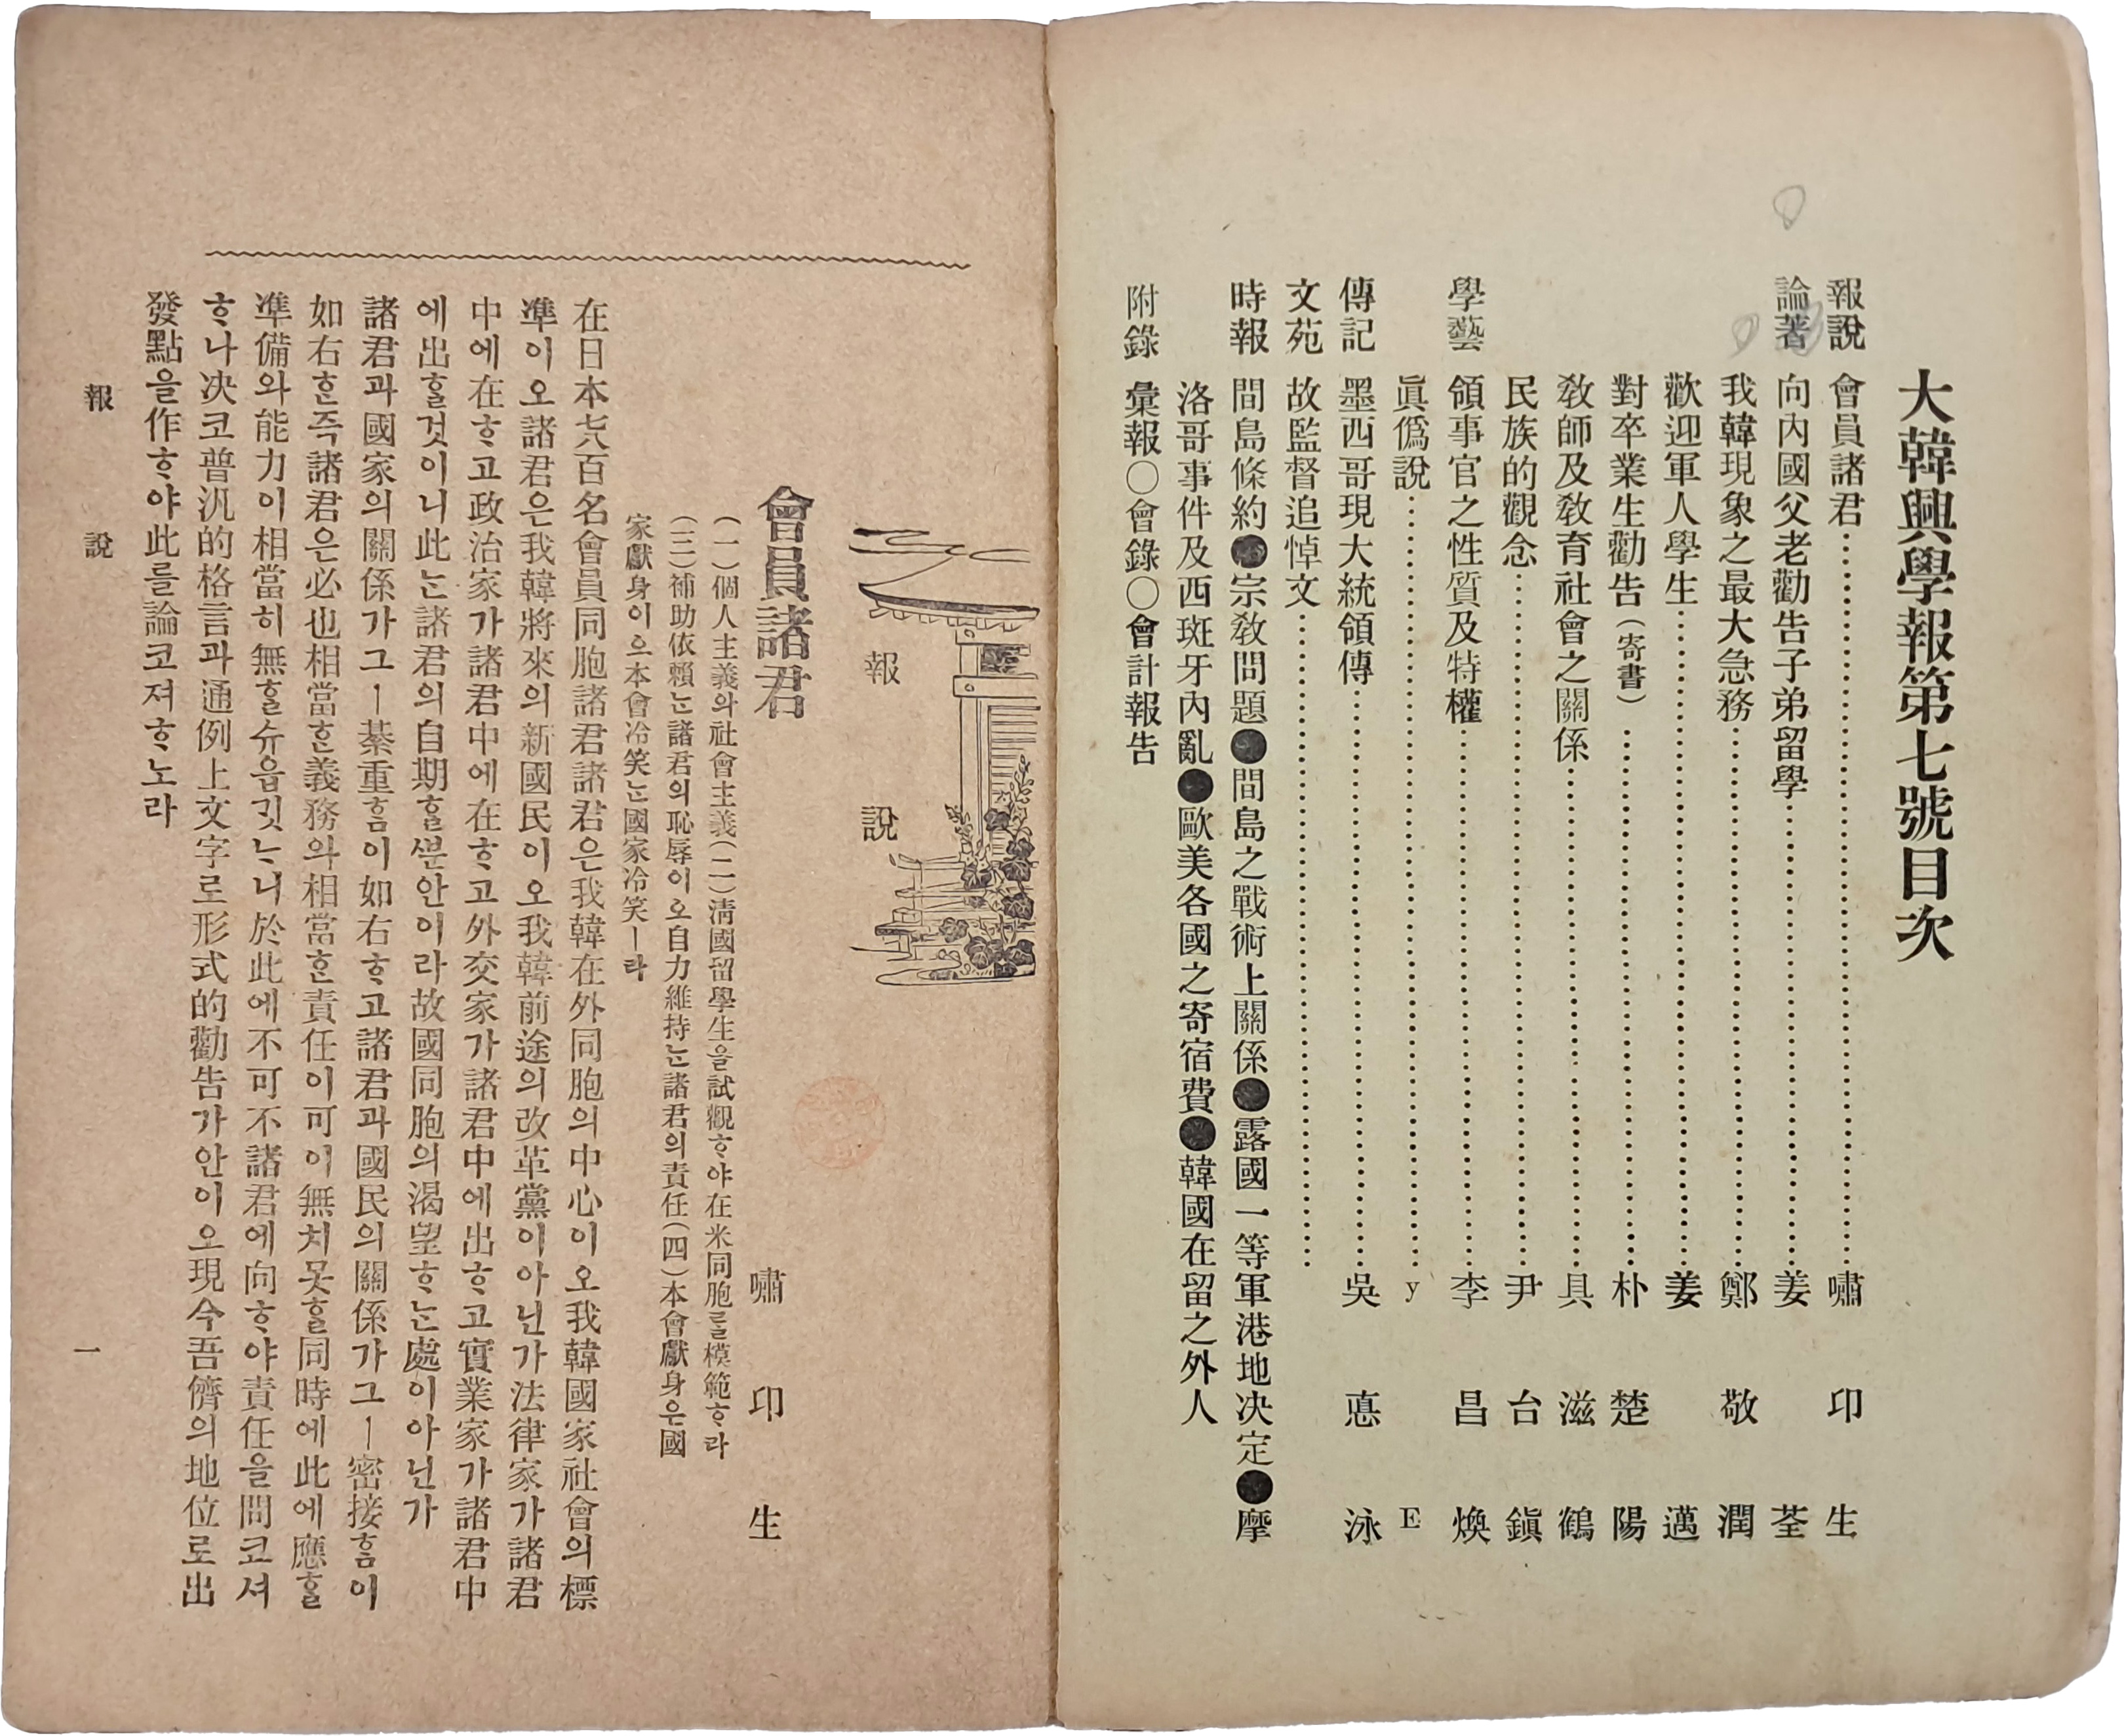 大韓興學報第七號目次
報說 會員諸君 嘯印生
論著 向內國父老勸告子弟留學 姜荃
我韓現象之最大急務 鄭敬潤
歡迎軍人學生 姜邁
對卒業生勸告(寄書) 朴楚陽
敎師及敎育社會之關係 具滋鶴
民族的觀念 尹台鎭
學藝 領事官之性質及特權 李昌煥
眞僞說 y E
傳記 墨西哥現大統領傳 吳悳泳
文苑 故監督追悼文
時報 間島條約●宗敎問題●間島之戰術上關係●露國一等軍港地決定●摩
洛哥事件及西班牙內亂●歐美各國之寄宿費●韓國在留之外人
附錄 彙報○會錄○會計報告
報說
會員諸君
嘯印生
(一)個人主義와社會主義(二)淸國留學生을試觀ᄒᆞ야在米同胞를模範ᄒᆞ라
(三)補助依賴ᄂᆞᆫ諸君의恥辱이오自力維持ᄂᆞᆫ諸君의責任(四)本會獻身은國
家獻身이으本會冷笑ᄂᆞᆫ國家冷笑ㅣ라
在日本七八百名會員同胞諸君諸君은我韓在外同胞의中心이오我韓國家社會의標
準이오諸君은我韓將來의新國民이오我韓前途의改革黨이아닌가法律家가諸君
中에在ᄒᆞ고政治家가諸君中에在ᄒᆞ고外交家가諸君中에出ᄒᆞ고實業家가諸君中
에出ᄒᆞᆯ것이니此ᄂᆞᆫ諸君의自期ᄒᆞᆯ분안이라故國同胞의渴望ᄒᆞᄂᆞᆫ處이아닌가
諸君과國家의關係가그ㅣ綦重ᄒᆞᆷ이如右ᄒᆞ고諸君과國民의關係가그ㅣ密接ᄒᆞᆷ이
如右ᄒᆞᆫ즉諸君은必也相當ᄒᆞᆫ義務와相當ᄒᆞᆫ責任이可이無치못ᄒᆞᆯ同時에此에應ᄒᆞᆯ
準備와能力이相當히無ᄒᆞᆯ슈읍깃ᄂᆞ니於此에不可不諸君에向ᄒᆞ야責任을問코셔
ᄒᆞ나决코普汎的格言과通例上文字로形式的勸告가안이오現今吾儕의地位로出
發點을作ᄒᆞ야此를論코져ᄒᆞ노라
報說
一